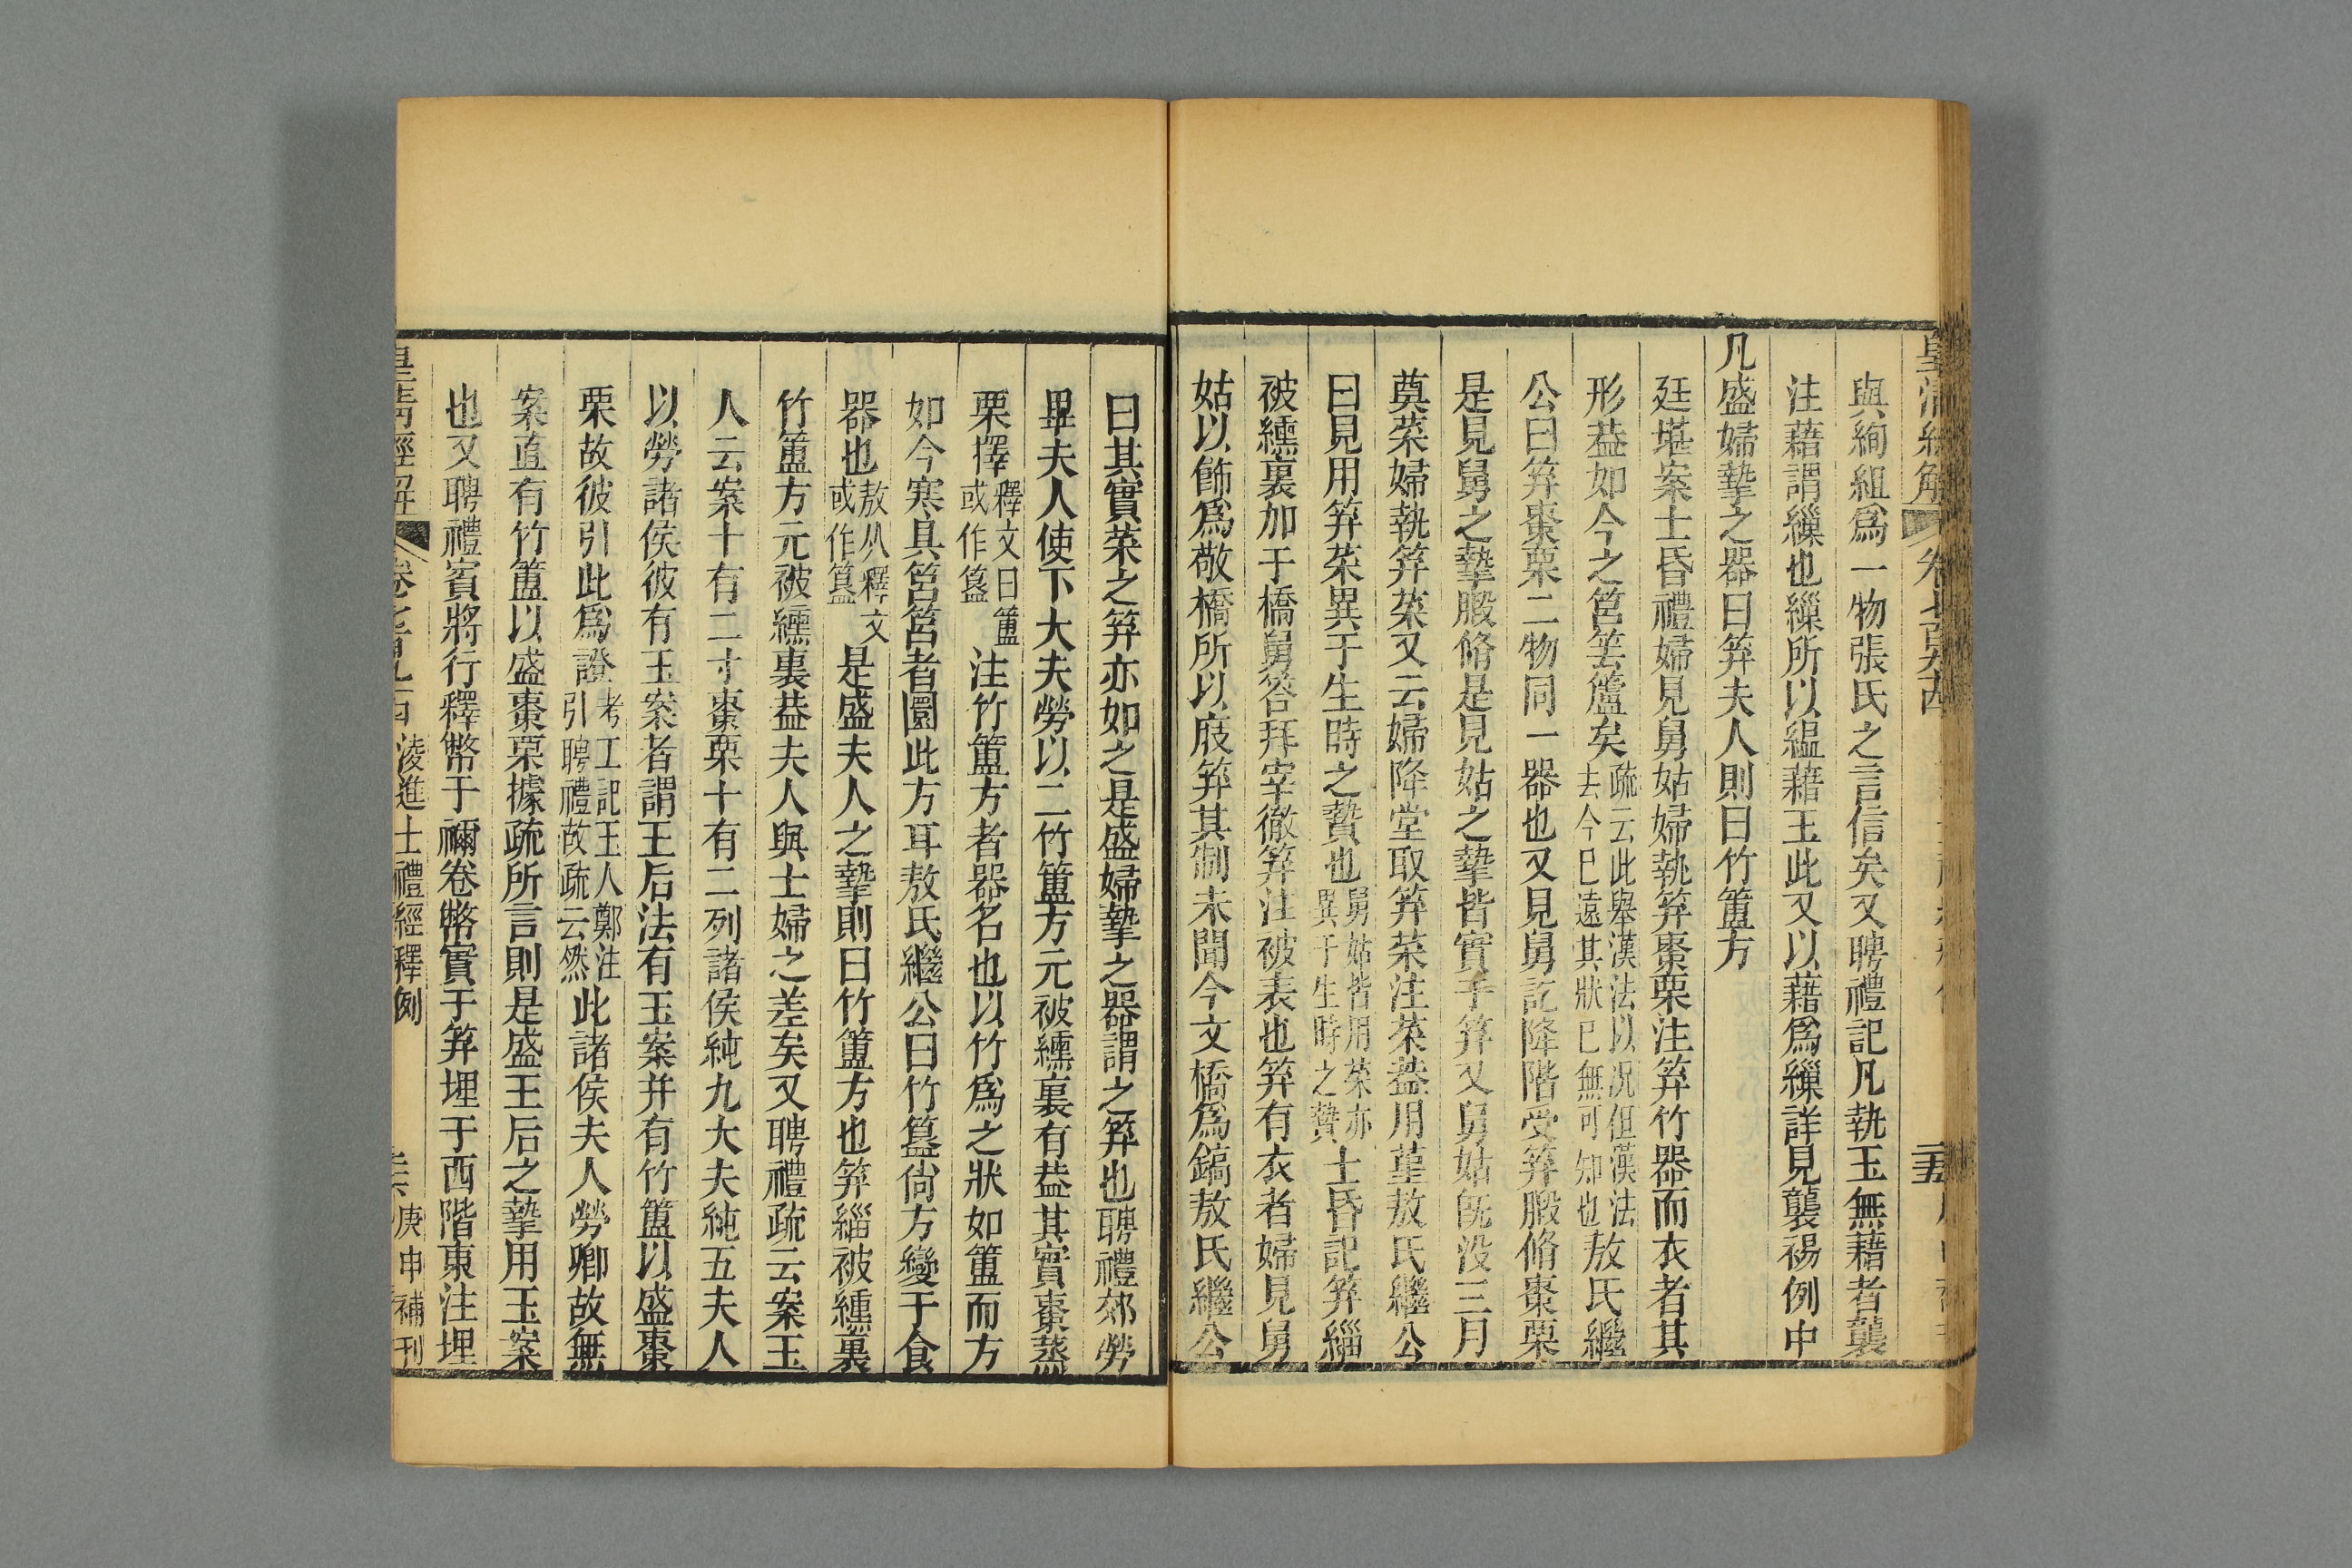 皇清經解
卷七百九十四
二十五
與絢組爲一物張氏之言信矣又聘禮記凡執玉無藉者襲
注藉謂繅也繅所以緼藉玉此又以藉爲繅詳見襲裼例中
凡盛婦摯之器曰笲夫人則曰竹簠方
廷堪案士昏禮婦見舅姑婦執笲棗栗注笲竹器而衣者其
形葢如今之筥𥬔籚矣疏云此舉漢法以況但漢法去今已遠其狀已無可知也敖氏繼
公曰笲棗栗二物同一器也又見舅訖降階受笲腶脩棗栗
是見舅之摯腶脩是見姑之摯皆實于笲又舅姑既没三月
奠菜婦執笲菜又云婦降堂取笲菜注菜葢用堇敖氏繼公
曰見用笲菜異于生時之贄也舅姑皆用菜亦異于生時之贄士昏記笲緇
被纁裏加于橋舅答拜宰徹笲注被表也笲有衣者婦見舅
姑以飾爲敬橋所以庪笲其制未聞今文橋爲鎬敖氏繼公
曰其實菜之笲亦如之是盛婦摯之器謂之笲也聘禮郊勞
畢夫人使下大夫勞以二竹簠方元被纁裏有葢其實棗蒸
栗擇釋文曰簠或作簋注竹簠方者器名也以竹爲之狀如簠而方
如今寒具筥筥者圜此方耳敖氏繼公曰竹簋尙方變于食
器也敖从釋文或作簋是盛夫人之摯則曰竹簠方也笲緇被纁裏
竹簠方元被纁裏葢夫人與士婦之差矣又聘禮疏云案玉
人云案十有二寸棗栗十有二列諸侯純九大夫純五夫人
以勞諸侯彼有玉案者謂王后法有玉案并有竹簠以盛棗
栗故彼引此爲證考工記玉人鄭注引聘禮故疏云然此諸侯夫人勞卿故無
案直有竹簠以盛棗栗據疏所言則是盛王后之摯用玉案
也又聘禮賓將行釋幣于禰卷幣實于笲埋于西階東注埋
皇清經解
卷七百九十四
淩進士禮經釋例
二十六
庚申補刊